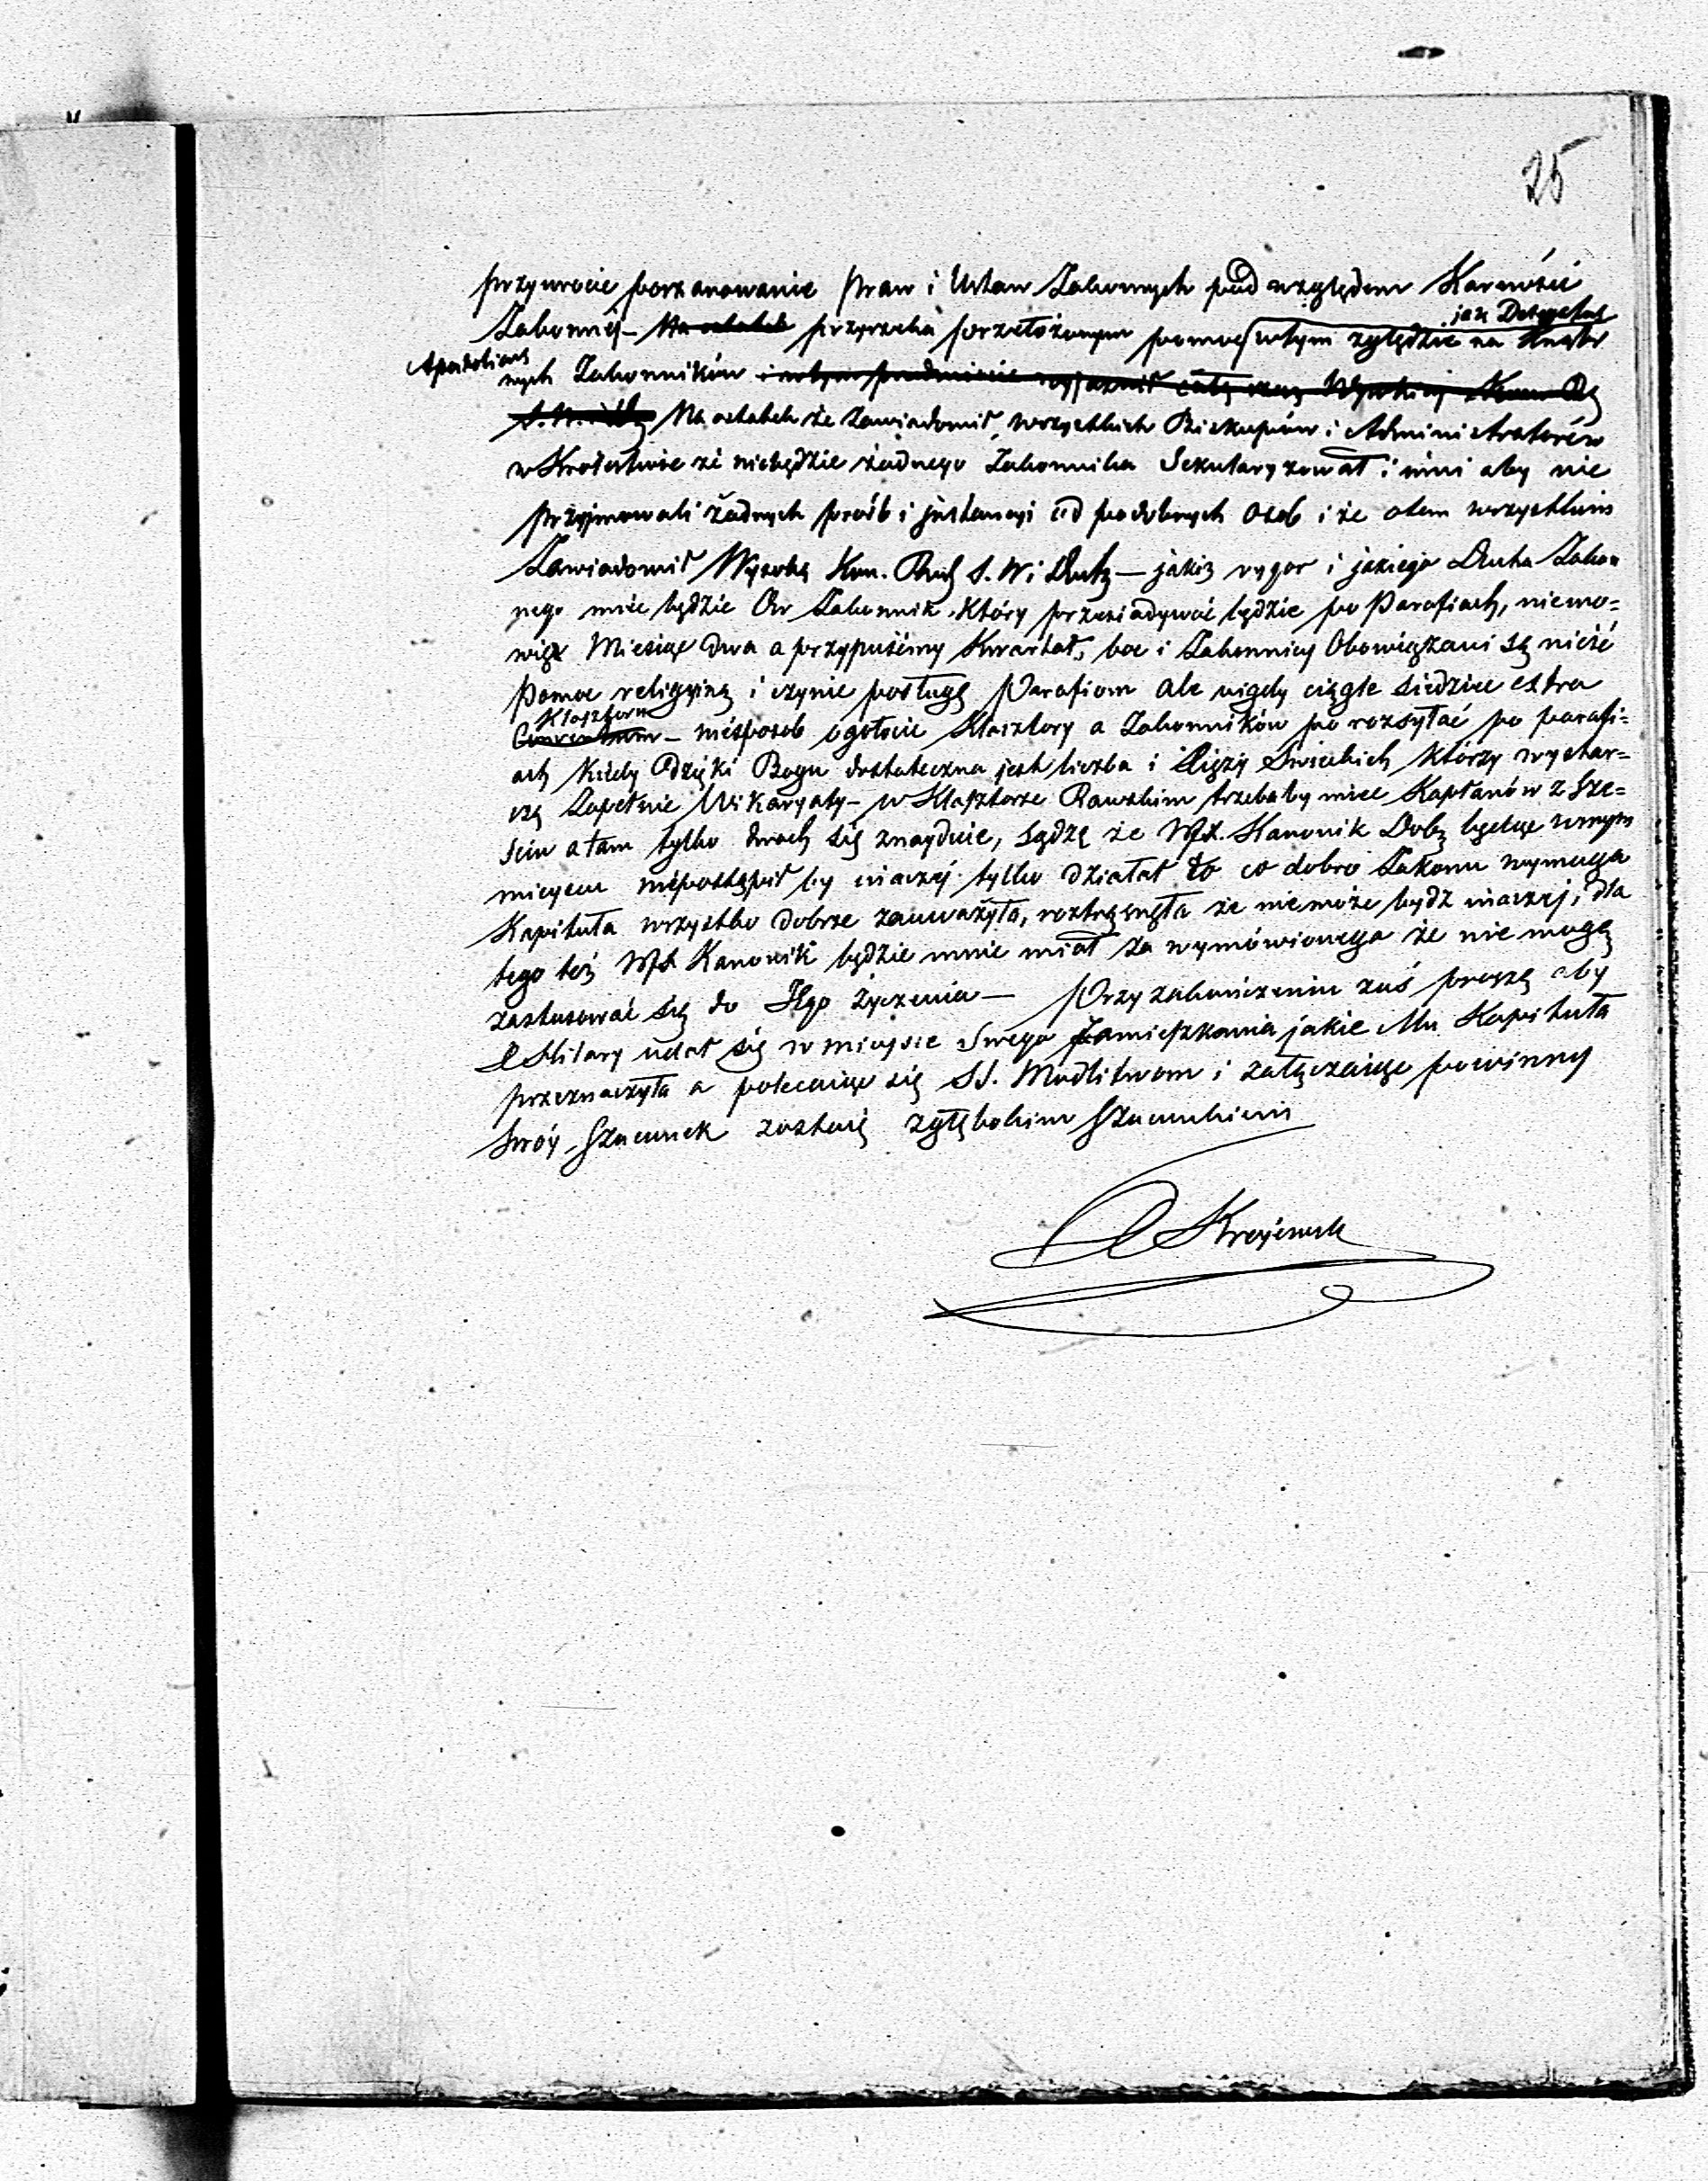 25
przywrocić poszanowanie Praw i Ustaw Zakonnych pod względem Karności
jak Delegatus
Zakonnéj – Na ostatek przyrzeka przełożonym pomoc w tym względzie na
Apostolicus
nych Zakonników i w tym przedmiocie wyjaśnił całą rzecz Wysokiéj Kom Rz
Na ostatek że zawiadomił wszystkich Biskupów i Administratorów
w Królestwie że niebędzie żadnego Zakonnika Sekularyzował i inni aby nie
przyjmowali żadnych prośb i instancyi od podobnych Osob i że otem wszystkiem
Zawiadomił Wysoką Kom. Rząd S. W i Duch – jakiż rygor i jakiego Ducha Zakon
nego mieć będzie Ów Zakonnik, Który przesiadywać będzie po Parafiach, niemo=
wię Miesiąc dwa a przypuśćmy Kwartał, boc i Zakonnicy Obowiązani są nieść
Pomoc religijną i czynić posługę Parafiom ale nigdy ciągle siedzieć extra
Klasztoru
Conventum – niésposob ogołocić Klasztory a Zakonników po rozsyłać po parafi=
ach Kiedy Dzięki Bogu dostateczna jest liczba i Xięży Swieckich Którzy wystar=
czą Zapełnić Wikaryaty – w Klasztorze Rawskim trzebaby mieć Kapłanów z Sze=
ściu a tam tylko dwoch się znayduie, sądzę że WJX. Kanonik Dob będąc w mym
mieyscu niépostąpił by inaczéj tylko działał to co dobro Zakonu wymaga
Kapituła wszystko dobrze zauważyła, roztrząsnęła że nie może bydz inaczej, dla
tego też WJX Kanonik będzie mnie miał za wymówionego że nie mogę
zastosować się do Jego życzenia – Przy zakończeniu zaś proszę aby
X Hilary udał się w mieysce Swego Zamieszkania jakie Mu Kapituła
przeznaczyła a polecając się SS. Modlitwom i załączając powinny
Swóy Szacunek zostaię z głębokim Szacunkiem
Krajewsk